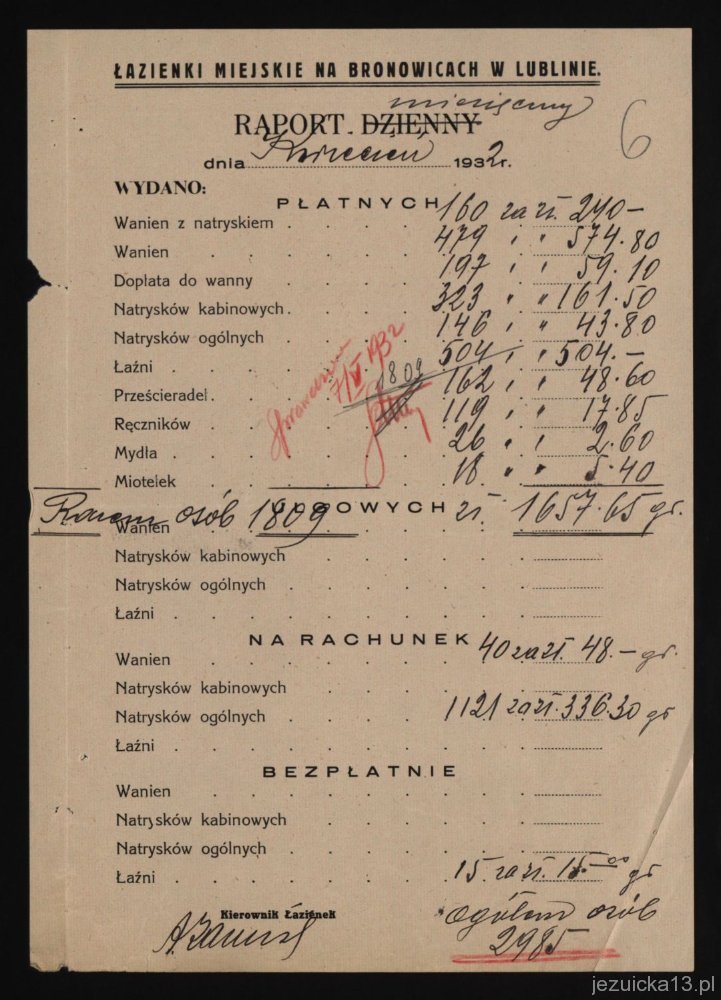 ŁAZIENKI MIEJSKIE NA BRONOWICACH W LUBLINIE.
miesięczny
6
RAPORT DZIENNY
dnia Kwiecień 1932r.
WYDANO:
PŁATNYCH
Wanien z natryskiem 160 za zł. 240 —
Wanien 479 " " 574.80
Dopłata do wanny 197 " " 59.10
Natrysków kabinowych. 323 " " 161.50
Natrysków ogólnych 146 " " 43.80
Łaźni 504 " " 504.—
Prześcieradeł. 162 " " 48.60
Ręczników 119 " " 17.85
Mydła 26 " " 2.60
Miotełek 18 " " 5.40
7/V 1932
1809
ULGOWYCH
Razem osób 1809 zł. 1657.65 gr.
Wanien
Natrysków kabinowych
Natrysków ogólnych
Łaźni
NA RACHUNEK
Wanien 40 za zł. 48.— gr.
Natrysków kabinowych
Natrysków ogólnych 1121 za zł. 336.30 gr
Łaźni
BEZPŁATNIE
Wanien
Natrysków kabinowych
Natrysków ogólnych
Łaźni 15 za zł. 15.00 gr
Kierownik Łazienek
Ogółem osób
2985
jezuicka13.pl